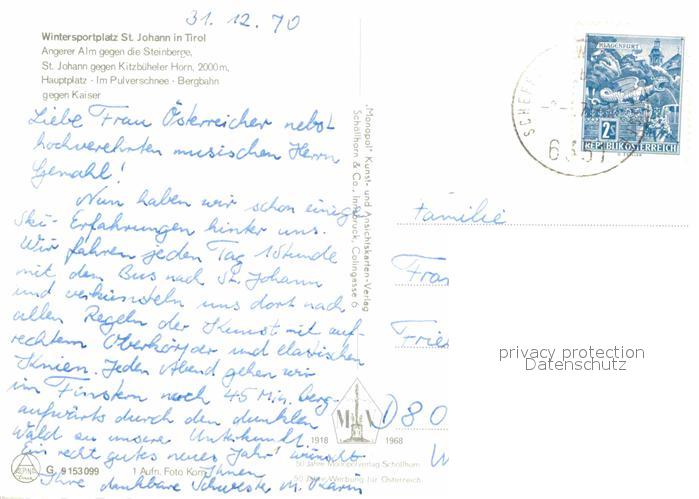 31. 12. 70
Wintersportplatz St. Johann in Tirol
Angerer Alm gegen die Steinberge,
St. Johann gegen Kitzbüheler Horn, 2000m,
Hauptplatz - Im Pulverschnee - Bergbahn
gegen Kaiser
Liebe Frau Österreicher nebst
hochverehrten musischen Herrn
Gemahl!
Nun haben wir schon einige
Ski-Erfahrungen hinter uns.
Wir fahren jeden Tag 1 Stunde
mit dem Bus nach St. Johann
und verkünsteln uns dort nach
allen Regeln der Kunst mit auf-
rechtem Oberkörper und elastischen
Knien. Jeden Abend gehen wir
im Finstern noch 45 Min. berg-
aufwärts durch den dunklen
Wald zu unsere Unterkunft.
Ein recht gutes neues Jahr! wünscht
Ihnen
Ihre dankbare Schwester M.
G 9153099
1 Aufn. Foto
"Monopol", Kunst- und Ansichtskarten-Verlag
Schöllhorn & Co., Innsbruck, Colingasse 6
MV
1918 1968
50 Jahre Monopolverlag Schöllhorn
50 Jahre Werbung für Österreich
ALPINE
SCHEFF
KLAGENFURT
2S
REPUBLIK ÖSTERREICH
Familie
Fran
Frie
D 80
W
privacy protection
Datenschutz